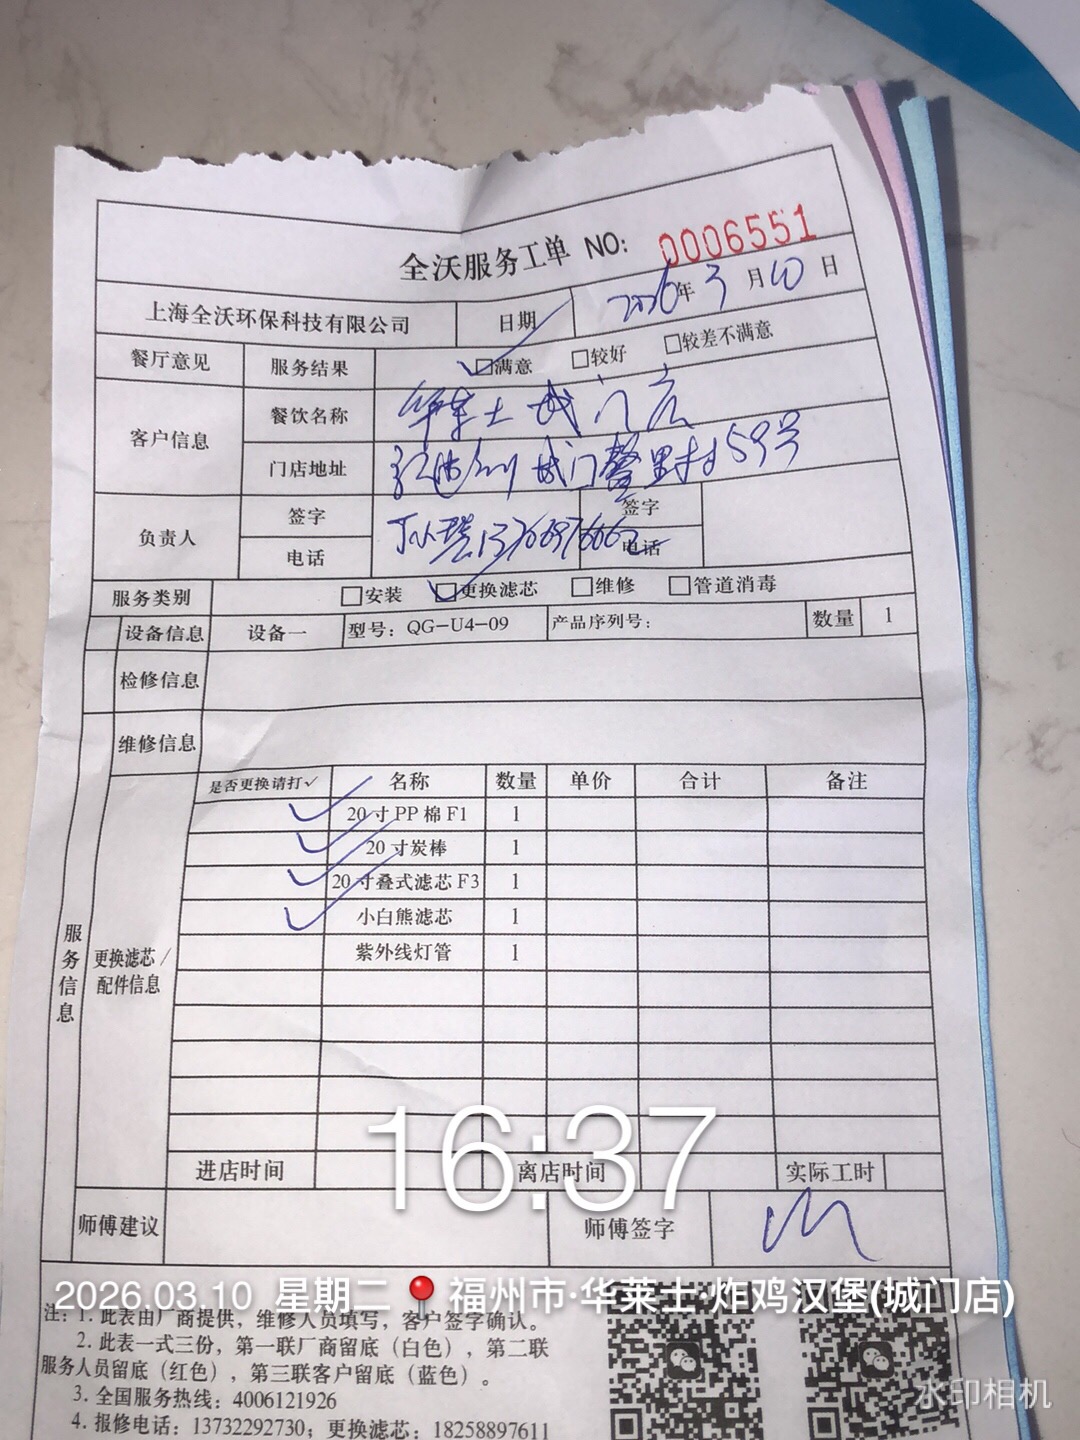 全沃服务工单 NO: 0006551
上海全沃环保科技有限公司 日期 2026年 3月 10日
餐厅意见 服务结果 □满意 □较好 □较差不满意
客户信息 餐饮名称 华莱士城门店
门店地址 城门鳌里村59号
负责人 签字 签字
电话 电话
服务类别 □安装 □更换滤芯 □维修 □管道消毒
设备信息 设备一 型号: QG-U4-09 产品序列号: 数量 1
检修信息
维修信息
服务信息
更换滤芯/配件信息
是否更换请打✓ 名称 数量 单价 合计 备注
✓ 20寸PP棉F1 1
✓ 20寸炭棒 1
✓ 20寸叠式滤芯F3 1
✓ 小白熊滤芯 1
紫外线灯管 1
16:37
进店时间 离店时间 实际工时
师傅建议 师傅签字
2026.03.10 星期二 福州市·华莱士·炸鸡汉堡(城门店)
注: 1. 此表由厂商提供，维修人员填写，客户签字确认。
2. 此表一式三份，第一联厂商留底（白色），第二联
服务人员留底（红色），第三联客户留底（蓝色）。
3. 全国服务热线: 4006121926
4. 报修电话: 13732292730; 更换滤芯: 18258897611
水印相机